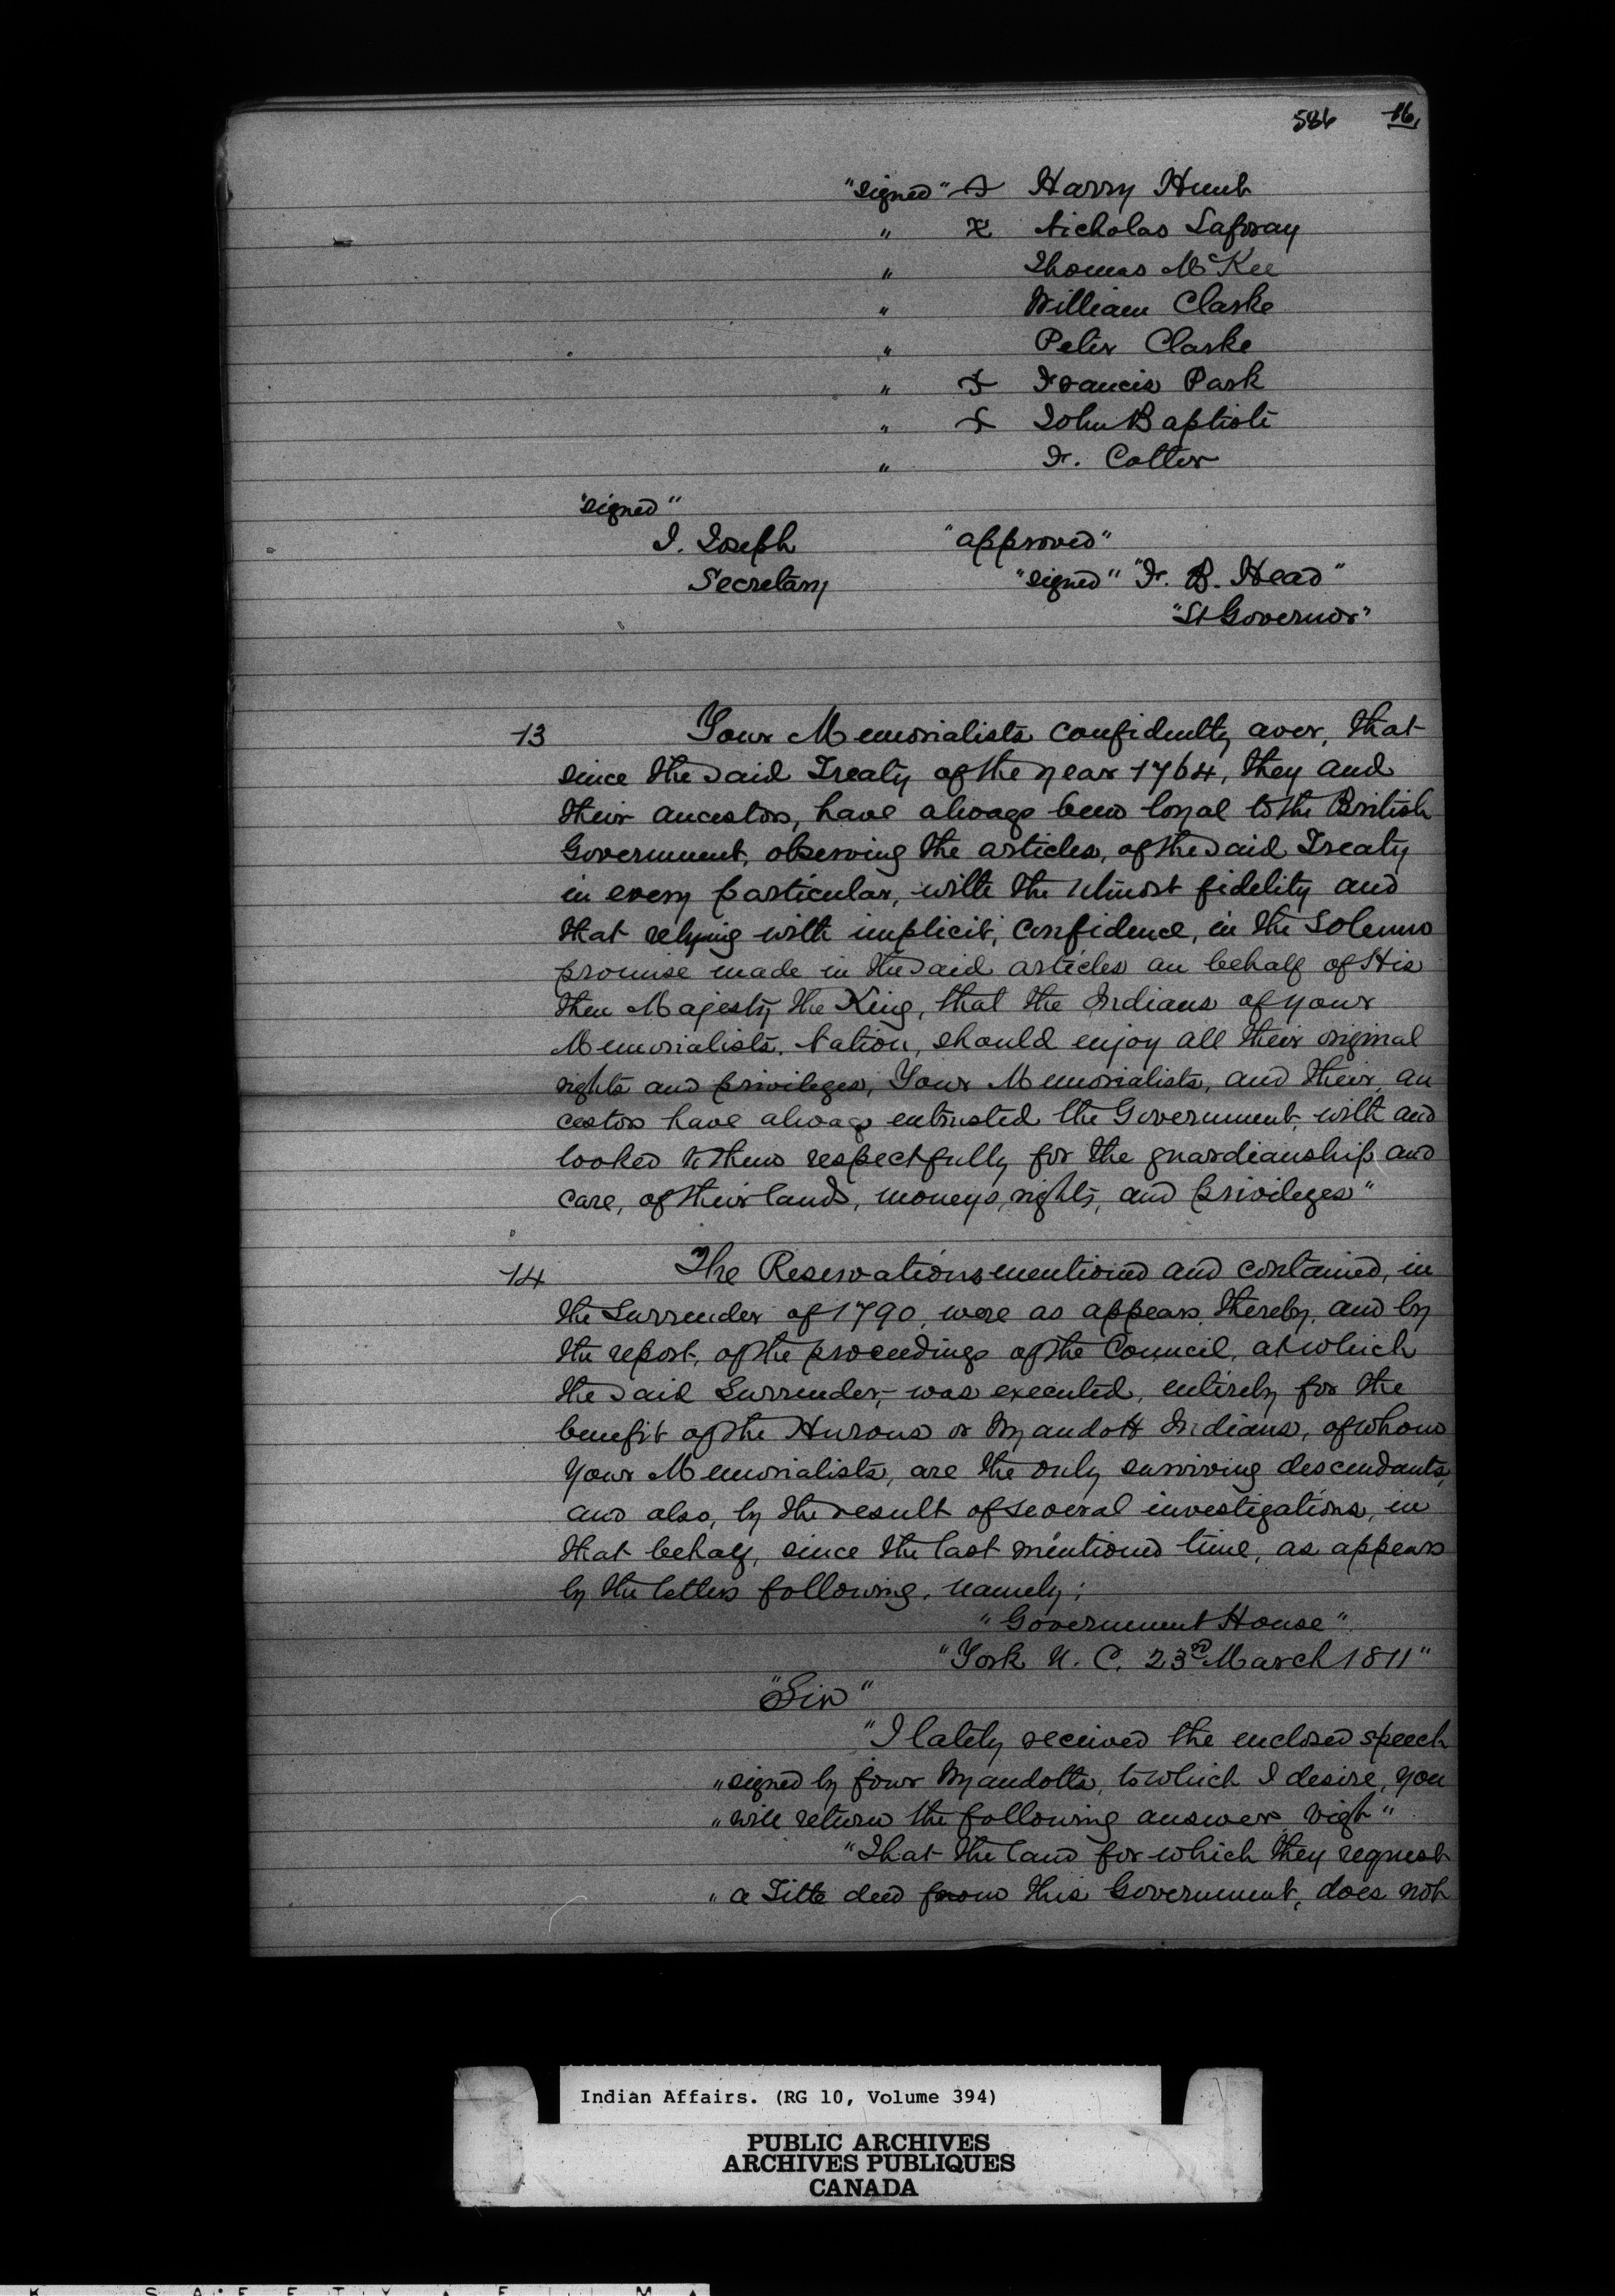 586 16
"signed" x Harry Hunt
" x Nicholas Laforay
" Thomas McKee
" William Clarke
" Peter Clarke
" x Francis Park
" x John Baptiste
" F. Cotter
"signed"
J. Joseph "approved"
Secretary "signed" "F. B. Head"
"Lt Governor"
13 Your Memorialists confidently aver, that
since the said Treaty of the year 1764, they and
their ancestors, have always been loyal to the British
Government, observing the articles, of the said Treaty
in every particular, with the utmost fidelity and
that relying with implicit, confidence, in the Solemn
promise made in the said articles an behalf of His
then Majesty the King, that the Indians of your
Memorialists, Nation, should enjoy all their original
rights and privileges, Your Memorialists, and their an
cestors have always entrusted the Government with and
looked to them respectfully for the guardianship and
care, of their lands, moneys, rights, and privileges"
14 The Reservations mentioned and contained, in
the Surrender of 1790, were as appears, thereby, and by
the report, of the proceedings of the Council, at which
the said Surrender, was executed, entirely for the
benefit of the Hurons or Wyandott Indians, of whom
Your Memorialists, are the only surviving descendants,
and also, by the result of several investigations, in
that behalf, since the last mentioned time, as appears
by the letters following, namely;
"Government House"
"York U. C. 23rd March 1811"
"Sir"
"I lately received the enclosed speech
"signed by four Wyandotts, to which I desire, you
"will return the following answer vizt"
"That the land for which they request
"a Title deed from this Government, does not
Indian Affairs. (RG 10, Volume 394)
PUBLIC ARCHIVES
ARCHIVES PUBLIQUES
CANADA